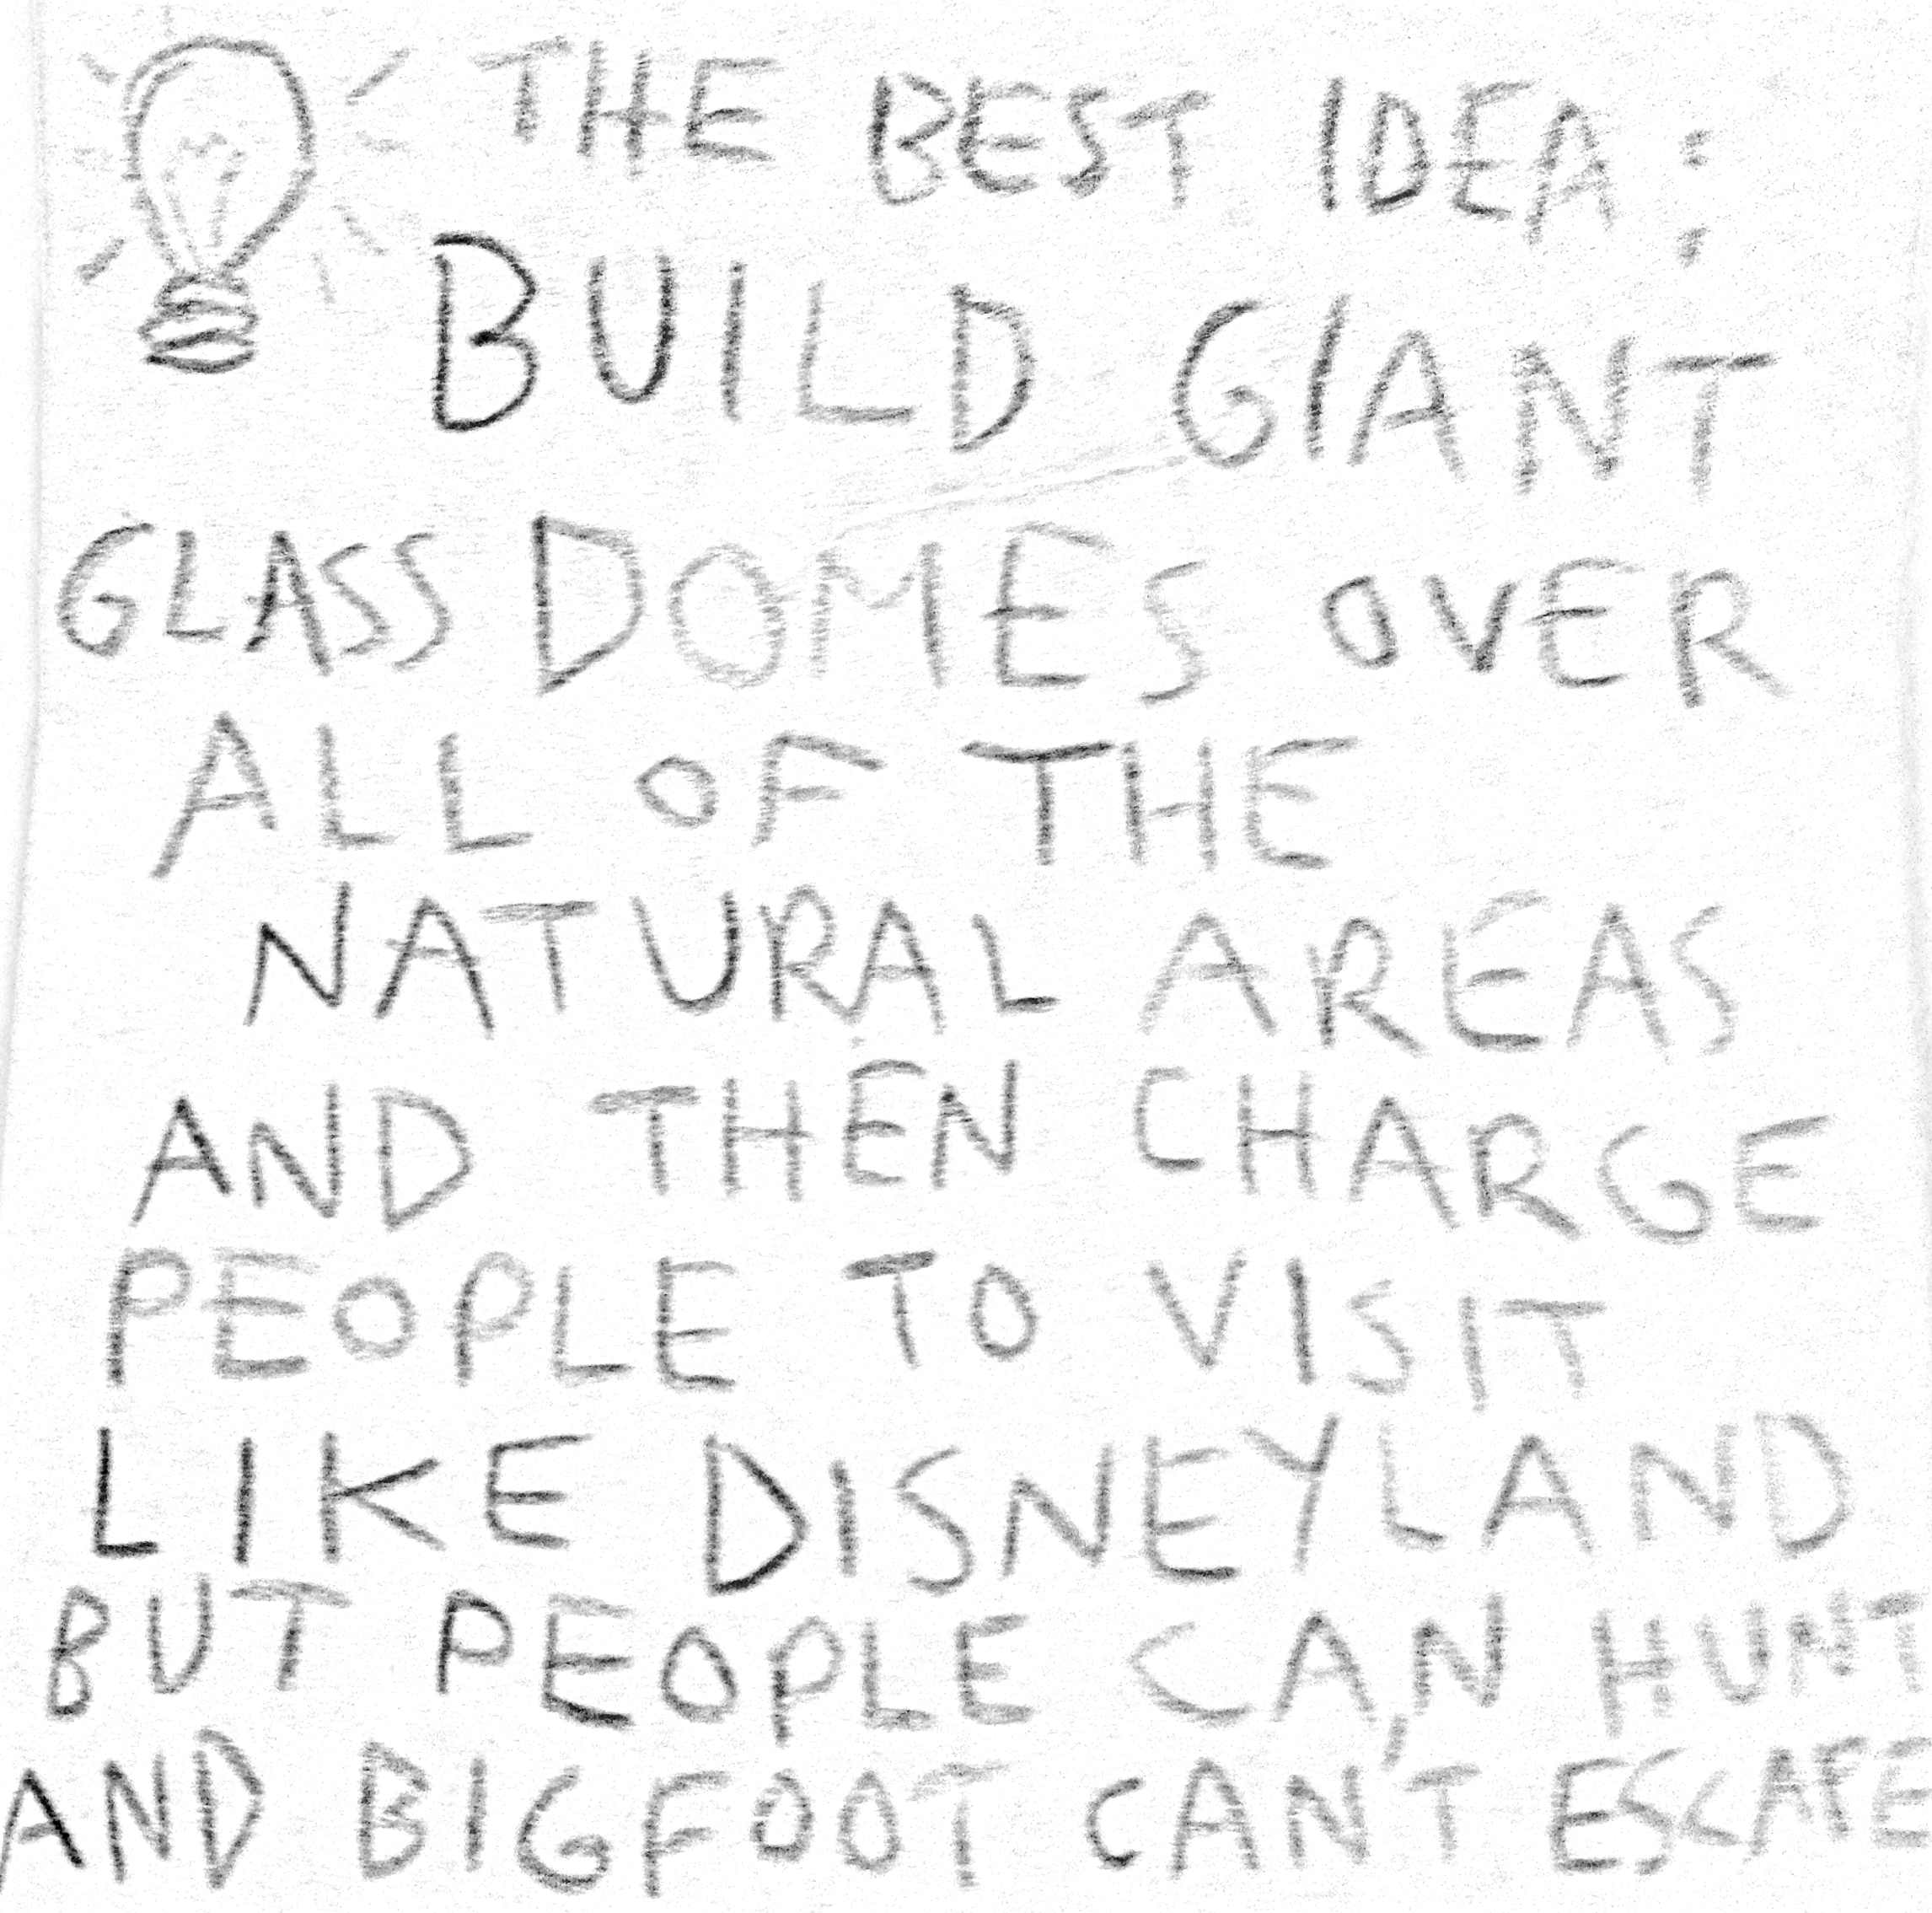 THE BEST IDEA:
BUILD GIANT
GLASS DOMES OVER
ALL OF THE
NATURAL AREAS
AND THEN CHARGE
PEOPLE TO VISIT
LIKE DISNEYLAND
BUT PEOPLE CAN HUNT
AND BIGFOOT CAN'T ESCAPE